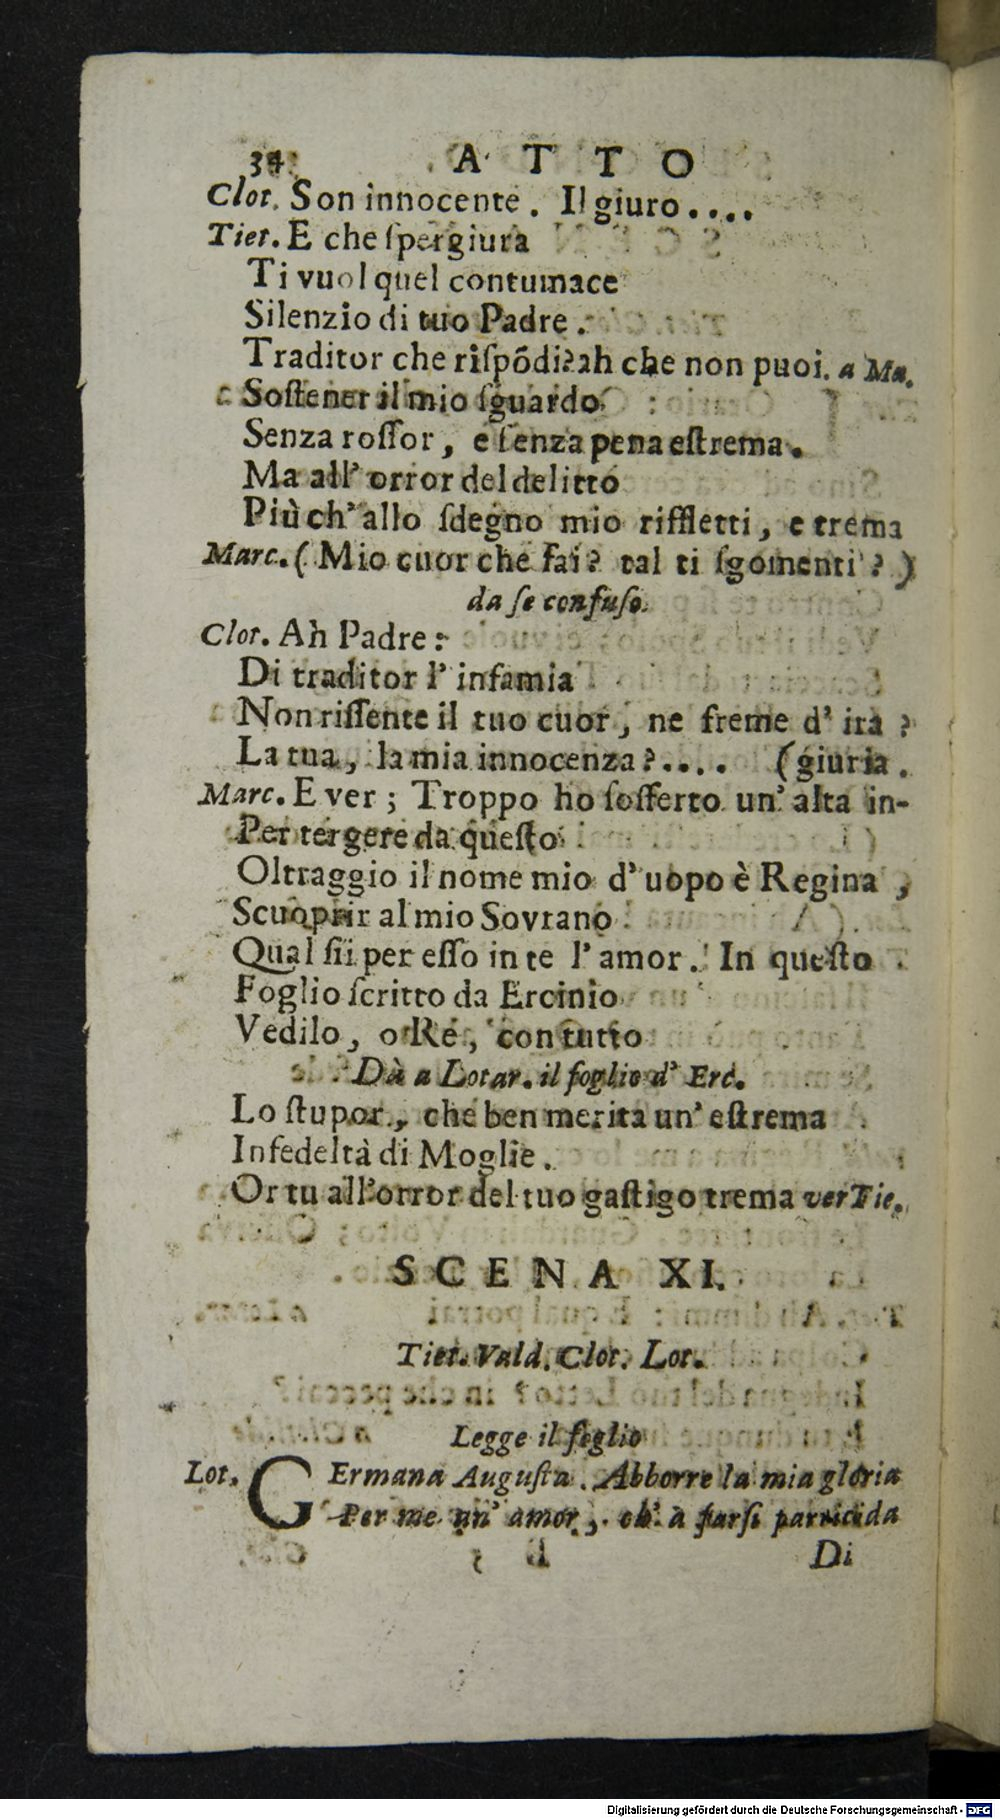 34 ATTO
Clot. Son innocente. Il giuro....
Tiet. E che ſpergiura
Ti vuol quel contumace
Silenzio di tuo Padre.
Traditor che riſpõdi? ah che non puoi. a Ma.
Soſtener il mio ſguardo
Senza roſſor, e ſenza pena eſtrema.
Ma all' orror del delitto
Più ch' allo ſdegno mio riffletti, e trema
Marc. (Mio cuor che fai? tal ti ſgomenti?)
da ſe confuſo.
Clot. Ah Padre:
Di traditor l' infamia
Non riſſente il tuo cuor, ne freme d' ira?
La tua, la mia innocenza?.... (giuria.
Marc. E ver; Troppo ho ſofferto un' alta in-
Per tergere da queſto
Oltraggio il nome mio d' uopo è Regina,
Scuoprir al mio Sovrano
Qual ſii per eſſo in te l' amor. In queſto
Foglio ſcritto da Ercinio
Vedilo, o Rè, con tutto
Dà a Lotar. il foglio d' Erc.
Lo ſtupor, che ben merita un' eſtrema
Infedeltà di Moglie.
Or tu all' orror del tuo gaſtigo trema ver Tie.
SCENA XI.
Tiet. Vald. Clot. Lot.
Legge il foglio
Lot. GErmana Auguſta. Abborre la mia gloria
Per me un' amor, ch' à farſi parricida
Di
Digitalisierung gefördert durch die Deutsche Forschungsgemeinschaft - DFG